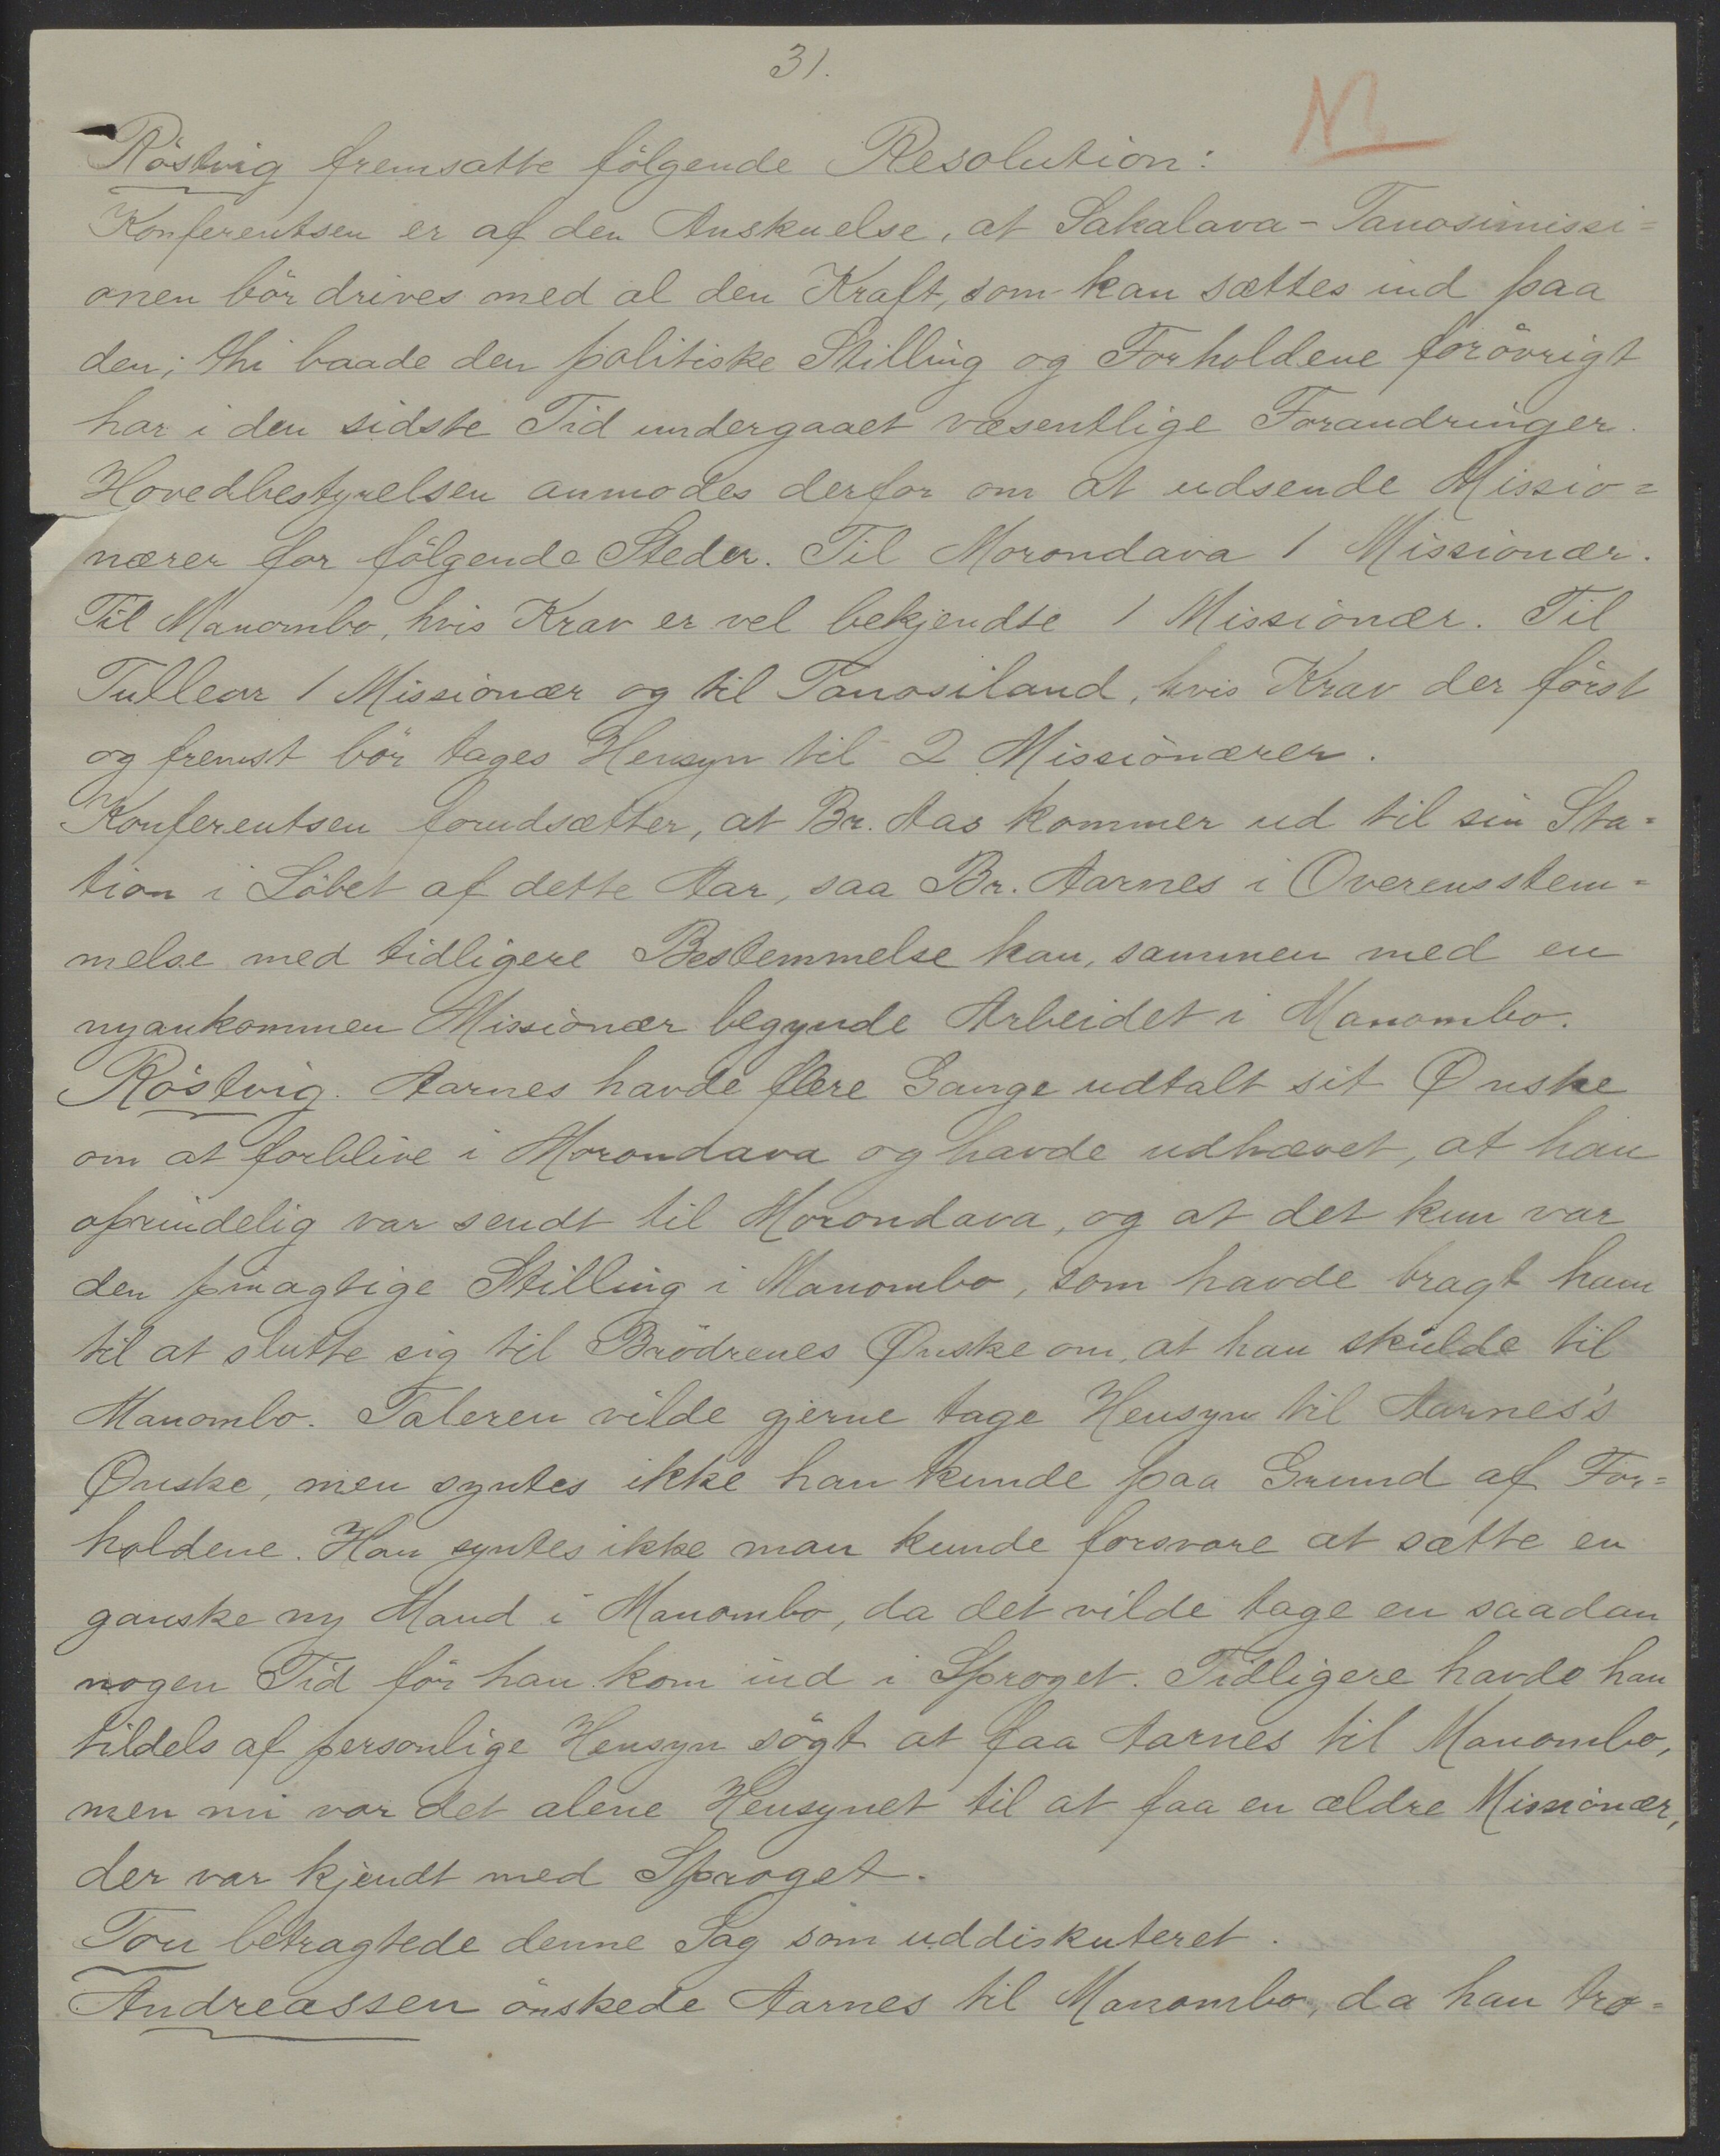 31.
NB
Röstvig fremsatte fölgende Resolution:
Konferentsen er af den Anskuelse, at Sakalava-Tanosimissi=
onen bör drives med al den Kraft, som kan sættes ind paa
den; thi baade den politiske Stilling og Forholdene forövrigt
har i den sidste Tid undergaaet væsentlige Forandringer.
Hovedbestyrelsen anmodes derfor om at udsende Missio=
nærer for fölgende Steder. Til Morondava 1 Missionær.
Til Manombo, hvis Krav er vel bekjendte 1 Missionær. Til
Tullear 1 Missionær og til Tanosiland, hvis Krav der först
og fremst bör tages Hensyn til 2 Missionærer.
Konferentsen forudsætter, at Br. Aas kommer ud til sin Sta=
tion i Löbet af dette Aar, saa Br. Aarnes i Overensstem=
melse med tidligere Bestemmelse kan, sammen med en
nyankommen Missionær begynde Arbeidet i Manombo.
Röstvig. Aarnes havde flere Gange udtalt sit Ønske
om at forblive i Morondava og havde udhævet, at han
oprindelig var sendt til Morondava, og at det kun var
den pinagtige Stilling i Manombo, som havde bragt ham
til at slutte sig til Brödrenes Ønske om, at han skulde til
Manombo. Taleren vilde gjerne tage Hensyn til Aarnes's
Ønske, men syntes ikke han kunde paa Grund af For=
holdene. Han syntes ikke man kunde forsvare at sætte en
ganske ny Mand i Manombo, da det vilde tage en saadan
nogen Tid för han kom ind i Sproget. Tidligere havde han
tildels af personlige Hensyn sögt at faa Aarnes til Manombo,
men nu var det alene Hensynet til at faa en ældre Missionær,
der var kjendt med Sproget.
Tou betragtede denne Sag som uddiskuteret.
Andreassen önskede Aarnes til Manombo, da han tro=